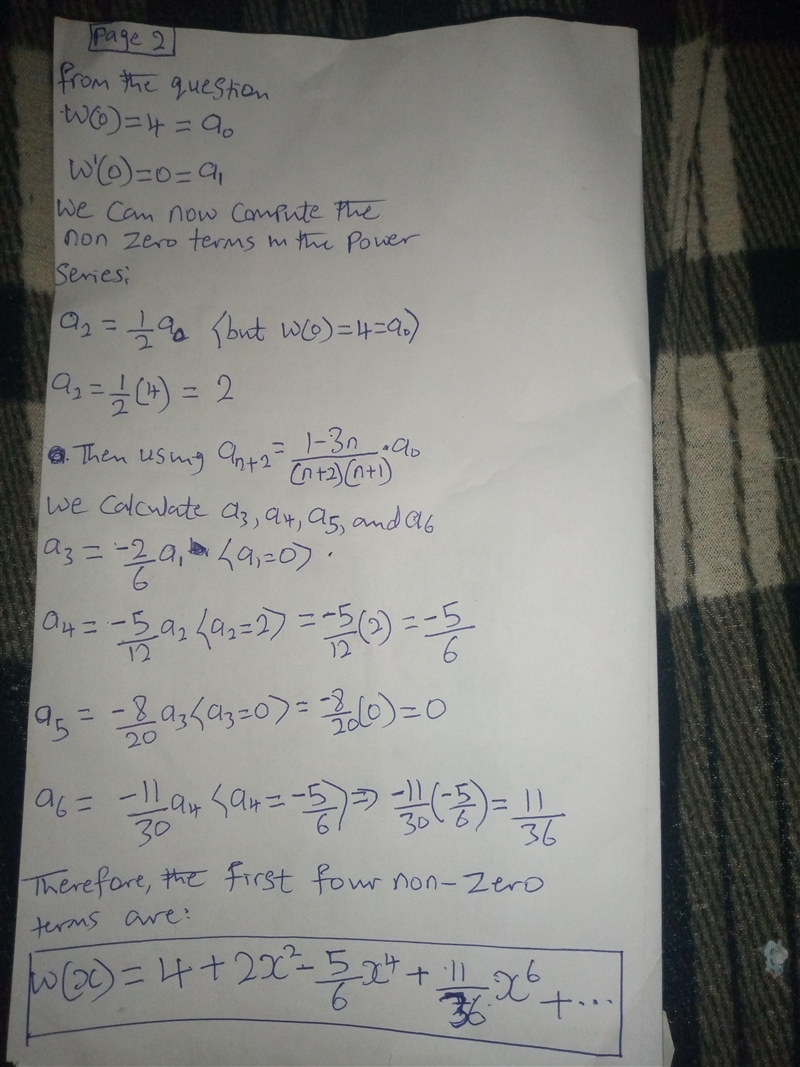 Page 2
from the question
W(0)=4=a₀
W'(0)=0=a₁
We can now compute the
non zero terms in the power
series:
a₂ = 1/2 a₀ (but W(0)=4=a₀)
a₂ = 1/2 (4) = 2
Then using aₙ₊₂ = (1-3n)/((n+2)(n+1)) · a₀
We calculate a₃, a₄, a₅, and a₆
a₃ = -2/6 a₁ <a₁=0> .
a₄ = -5/12 a₂ <a₂=2> = -5/12 (2) = -5/6
a₅ = -8/20 a₃ <a₃=0> = -8/20 (0) = 0
a₆ = -11/30 a₄ <a₄ = -5/6) => -11/30 (-5/6) = 11/36
Therefore, the first four non-zero
terms are:
W(x) = 4 + 2x² - 5/6 x⁴ + 11/36 x⁶ + ...